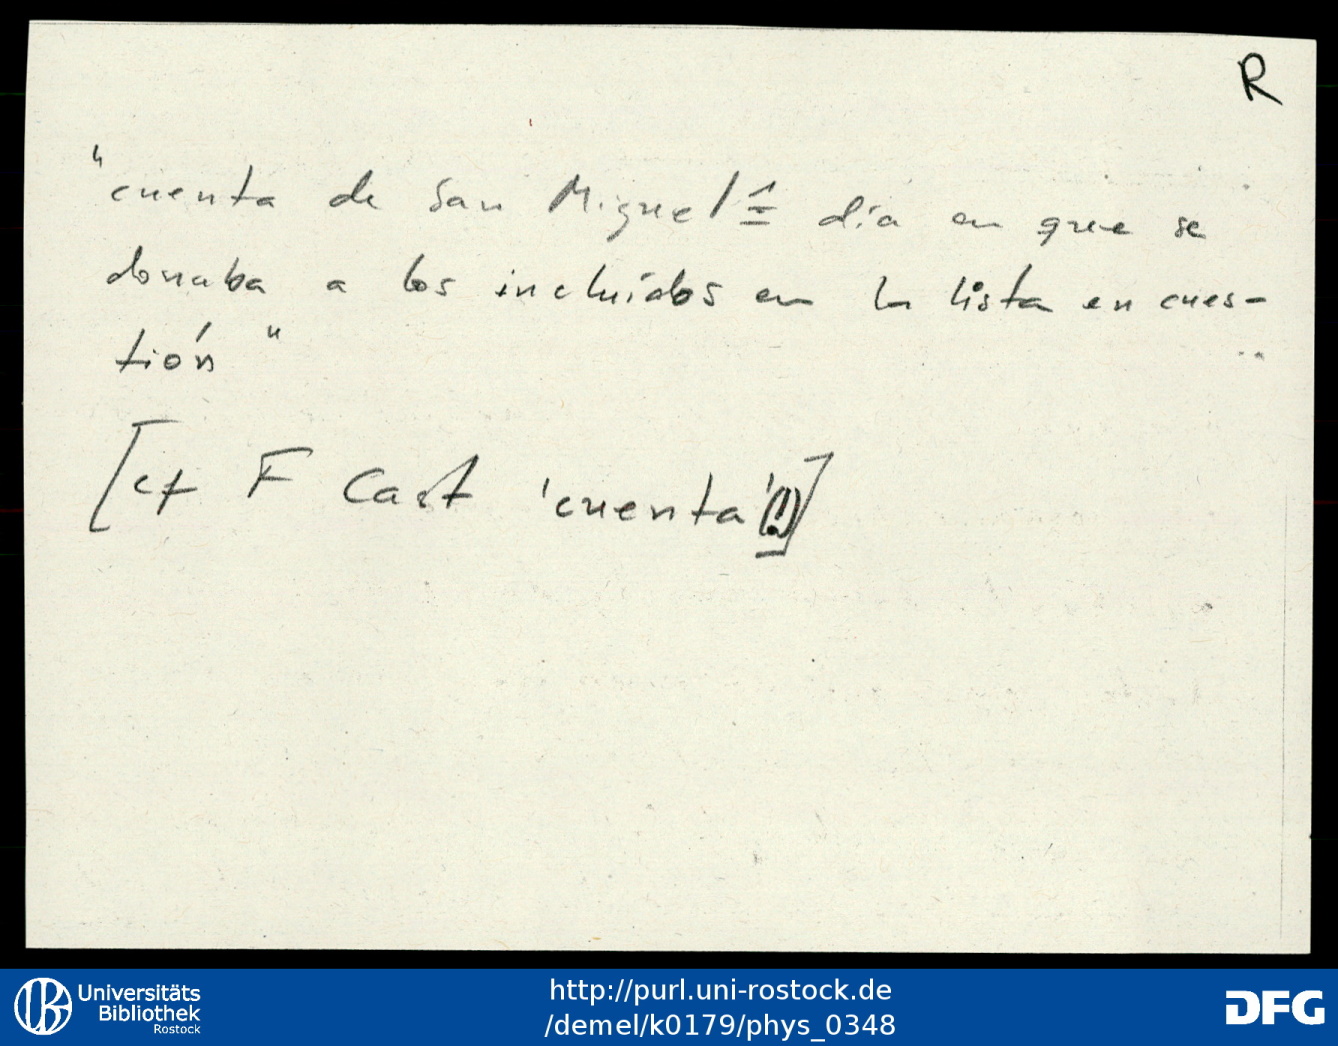 R
"cuenta de San Miguel ≙ día en que se
donaba a los incluídos en la lista en cues-
tión"
[cf F Cast 'cuenta'(!)]
Universitäts
Bibliothek
Rostock
http://purl.uni-rostock.de
/demel/k0179/phys_0348
DFG